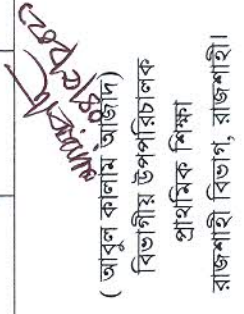 ( আবুল কালাম আজাদ)
বিভাগীয় উপপরিচালক
প্রাথমিক শিক্ষা
রাজশাহী বিভাগ, রাজশাহী।